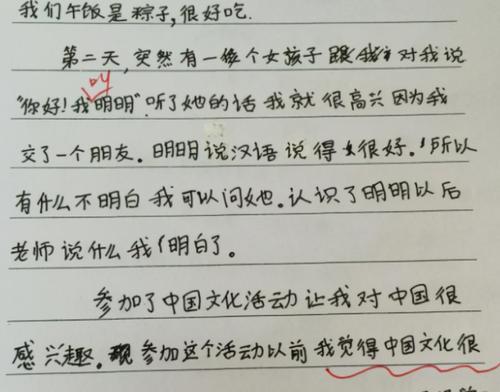 我们午饭是粽子,很好吃.
第二天,突然有一个女孩子对我说
"你好!我叫明明".听了她的话我就很高兴因为我
交了一个朋友.明明说汉语说得很好.所以
有什么不明白我可以问她.认识了明明以后
老师说什么我明白了。
参加了中国文化活动让我对中国很
感兴趣.参加这个活动以前我觉得中国文化很